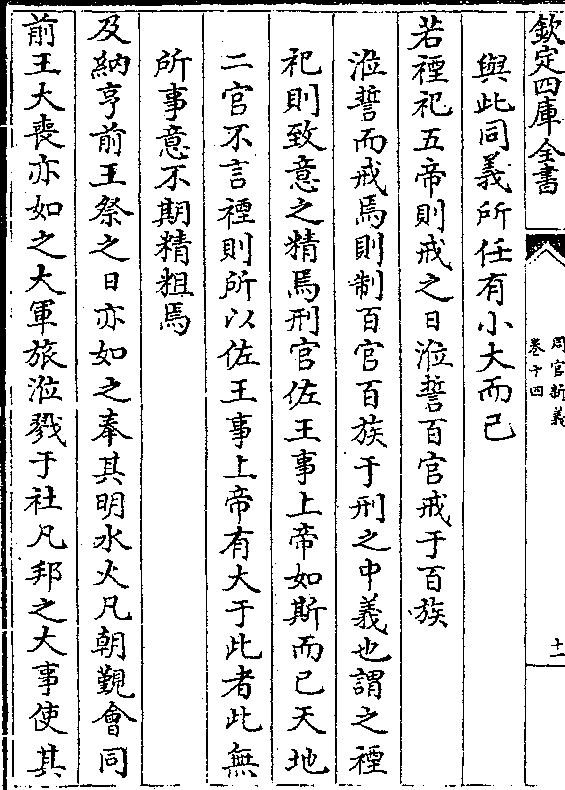 欽定四庫全書
周官新義
卷十四
十一
與此同義所任有小大而已
若禋祀五帝則戒之日涖誓百官戒于百族
涖誓而戒焉則制百官百族于刑之中義也謂之禋
祀則致意之精焉刑官佐王事上帝如斯而已天地
二官不言禋則所以佐王事上帝有大于此者此無
所事意不期精粗焉
及納亨前王祭之日亦如之奉其明水火凡朝覲會同
前王大喪亦如之大軍旅涖戮于社凡邦之大事使其